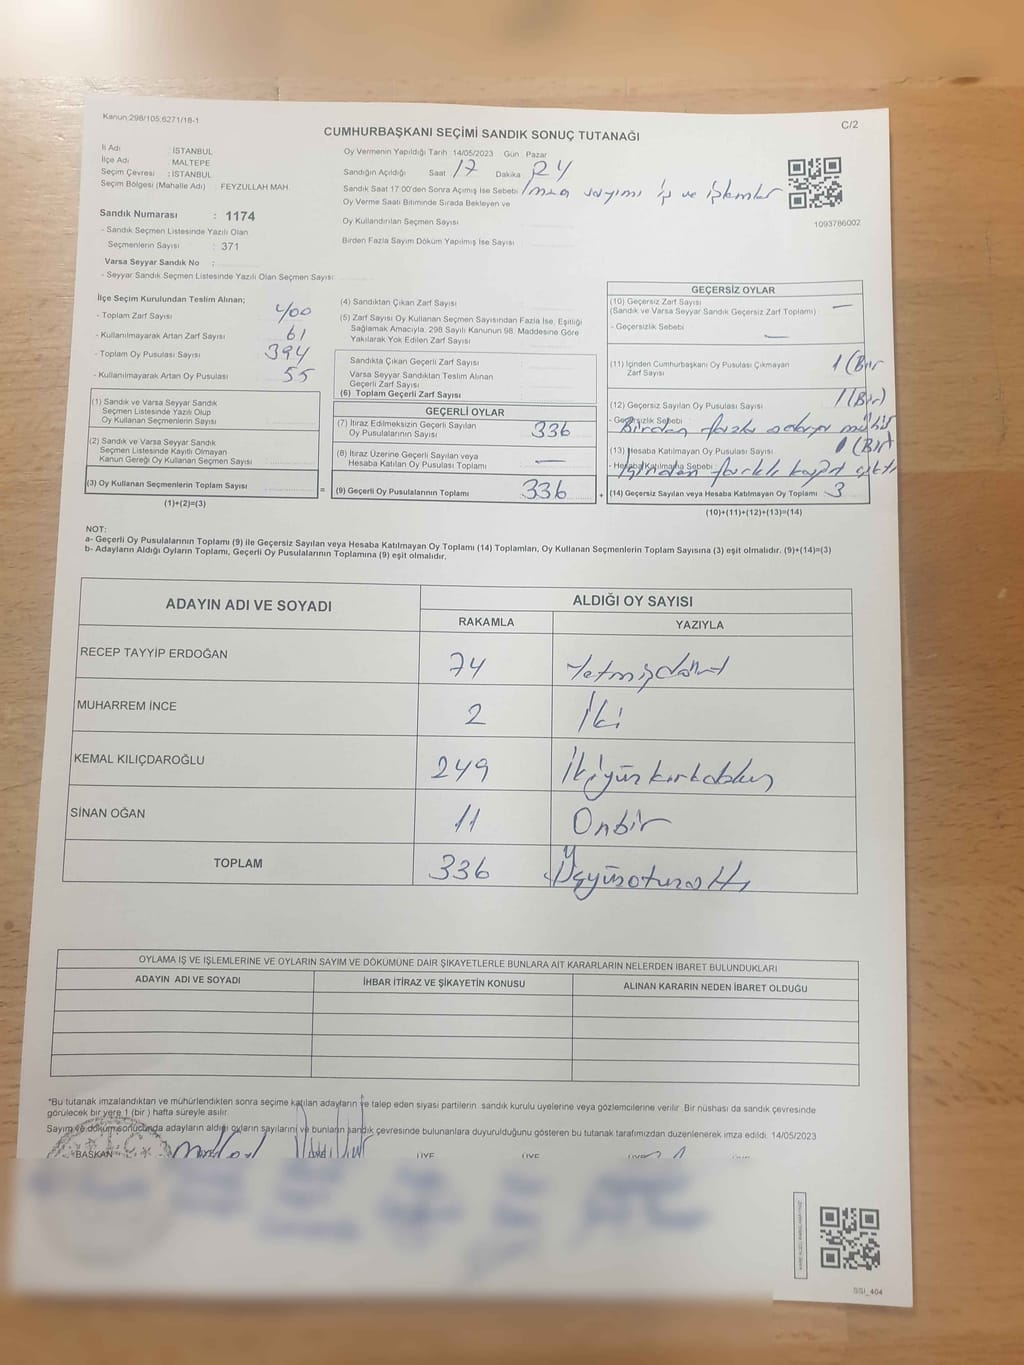 Kanun:298/105,6271/18-1
C/2
CUMHURBAŞKANI SEÇİMİ SANDIK SONUÇ TUTANAĞI
İli Adı : İSTANBUL
İlçe Adı : MALTEPE
Seçim Çevresi : İSTANBUL
Seçim Bölgesi (Mahalle Adı) FEYZULLAH MAH.
Sandık Numarası : 1174
- Sandık Seçmen Listesinde Yazılı Olan
Seçmenlerin Sayısı : 371
Varsa Seyyar Sandık No :
- Seyyar Sandık Seçmen Listesinde Yazılı Olan Seçmen Sayısı:
Oy Vermenin Yapıldığı Tarih :14/05/2023 Gün Pazar
Sandığın Açıldığı Saat 17 Dakika 24
Sandık Saat 17:00'den Sonra Açılmış İse Sebebi İmza sayımı iş ve işlemler
Oy Verme Saati Bitiminde Sırada Bekleyen ve
Oy Kullandırılan Seçmen Sayısı
Birden Fazla Sayım Döküm Yapılmış İse Sayısı
1093786002
İlçe Seçim Kurulundan Teslim Alınan;
- Toplam Zarf Sayısı 400
- Kullanılmayarak Artan Zarf Sayısı 61
- Toplam Oy Pusulası Sayısı 394
- Kullanılmayarak Artan Oy Pusulası 55
(1) Sandık ve Varsa Seyyar Sandık
Seçmen Listesinde Yazılı Olup
Oy Kullanan Seçmenlerin Sayısı
(2) Sandık ve Varsa Seyyar Sandık
Seçmen Listesinde Kayıtlı Olmayan
Kanun Gereği Oy Kullanan Seçmen Sayısı
(3) Oy Kullanan Seçmenlerin Toplam Sayısı
(1)+(2)=(3)
=
(4) Sandıktan Çıkan Zarf Sayısı
(5) Zarf Sayısı Oy Kullanan Seçmen Sayısından Fazla İse, Eşitliği
Sağlamak Amacıyla, 298 Sayılı Kanunun 98. Maddesine Göre
Yakılarak Yok Edilen Zarf Sayısı
Sandıkta Çıkan Geçerli Zarf Sayısı
Varsa Seyyar Sandıktan Teslim Alınan
Geçerli Zarf Sayısı
(6) Toplam Geçerli Zarf Sayısı
GEÇERLİ OYLAR
(7) İtiraz Edilmeksizin Geçerli Sayılan
Oy Pusulalarının Sayısı 336
(8) İtiraz Üzerine Geçerli Sayılan veya
Hesaba Katılan Oy Pusulası Toplamı —
(9) Geçerli Oy Pusulalarının Toplamı 336
+
GEÇERSİZ OYLAR
(10) Geçersiz Zarf Sayısı
(Sandık ve Varsa Seyyar Sandık Geçersiz Zarf Toplamı) —
- Geçersizlik Sebebi —
(11) İçinden Cumhurbaşkanı Oy Pusulası Çıkmayan
Zarf Sayısı 1 (Bir
(12) Geçersiz Sayılan Oy Pusulası Sayısı 1 (Bir)
- Geçersizlik Sebebi Birden fazla adaya mühür
(13) Hesaba Katılmayan Oy Pusulası Sayısı 1 (Bir
- Hesaba Katılmama Sebebi İçinden farklı kağıt çıktı
(14) Geçersiz Sayılan veya Hesaba Katılmayan Oy Toplamı 3
(10)+(11)+(12)+(13)=(14)
NOT:
a- Geçerli Oy Pusulalarının Toplamı (9) ile Geçersiz Sayılan veya Hesaba Katılmayan Oy Toplamı (14) Toplamları, Oy Kullanan Seçmenlerin Toplam Sayısına (3) eşit olmalıdır. (9)+(14)=(3)
b- Adayların Aldığı Oyların Toplamı, Geçerli Oy Pusulalarının Toplamına (9) eşit olmalıdır.
ADAYIN ADI VE SOYADI
ALDIĞI OY SAYISI
RAKAMLA YAZIYLA
RECEP TAYYİP ERDOĞAN 74 Yetmişdört
MUHARREM İNCE 2 İki
KEMAL KILIÇDAROĞLU 249 İkiyüzkırkdokuz
SİNAN OĞAN 11 Onbir
TOPLAM 336 Üçyüzotuzaltı
OYLAMA İŞ VE İŞLEMLERİNE VE OYLARIN SAYIM VE DÖKÜMÜNE DAİR ŞİKAYETLERLE BUNLARA AİT KARARLARIN NELERDEN İBARET BULUNDUKLARI
ADAYIN ADI VE SOYADI İHBAR İTİRAZ VE ŞİKAYETİN KONUSU ALINAN KARARIN NEDEN İBARET OLDUĞU
*Bu tutanak imzalandıktan ve mühürlendikten sonra seçime katılan adayların ve talep eden siyasi partilerin sandık kurulu üyelerine veya gözlemcilerine verilir. Bir nüshası da sandık çevresinde
görülecek bir yere 1 (bir ) hafta süreyle asılır.
Sayım ve döküm sonucunda adayların aldığı oyların sayılarını ve bunların sandık çevresinde bulunanlara duyurulduğunu gösteren bu tutanak tarafımızdan düzenlenerek imza edildi. 14/05/2023
BAŞKAN ÜYE ÜYE
SSI_404